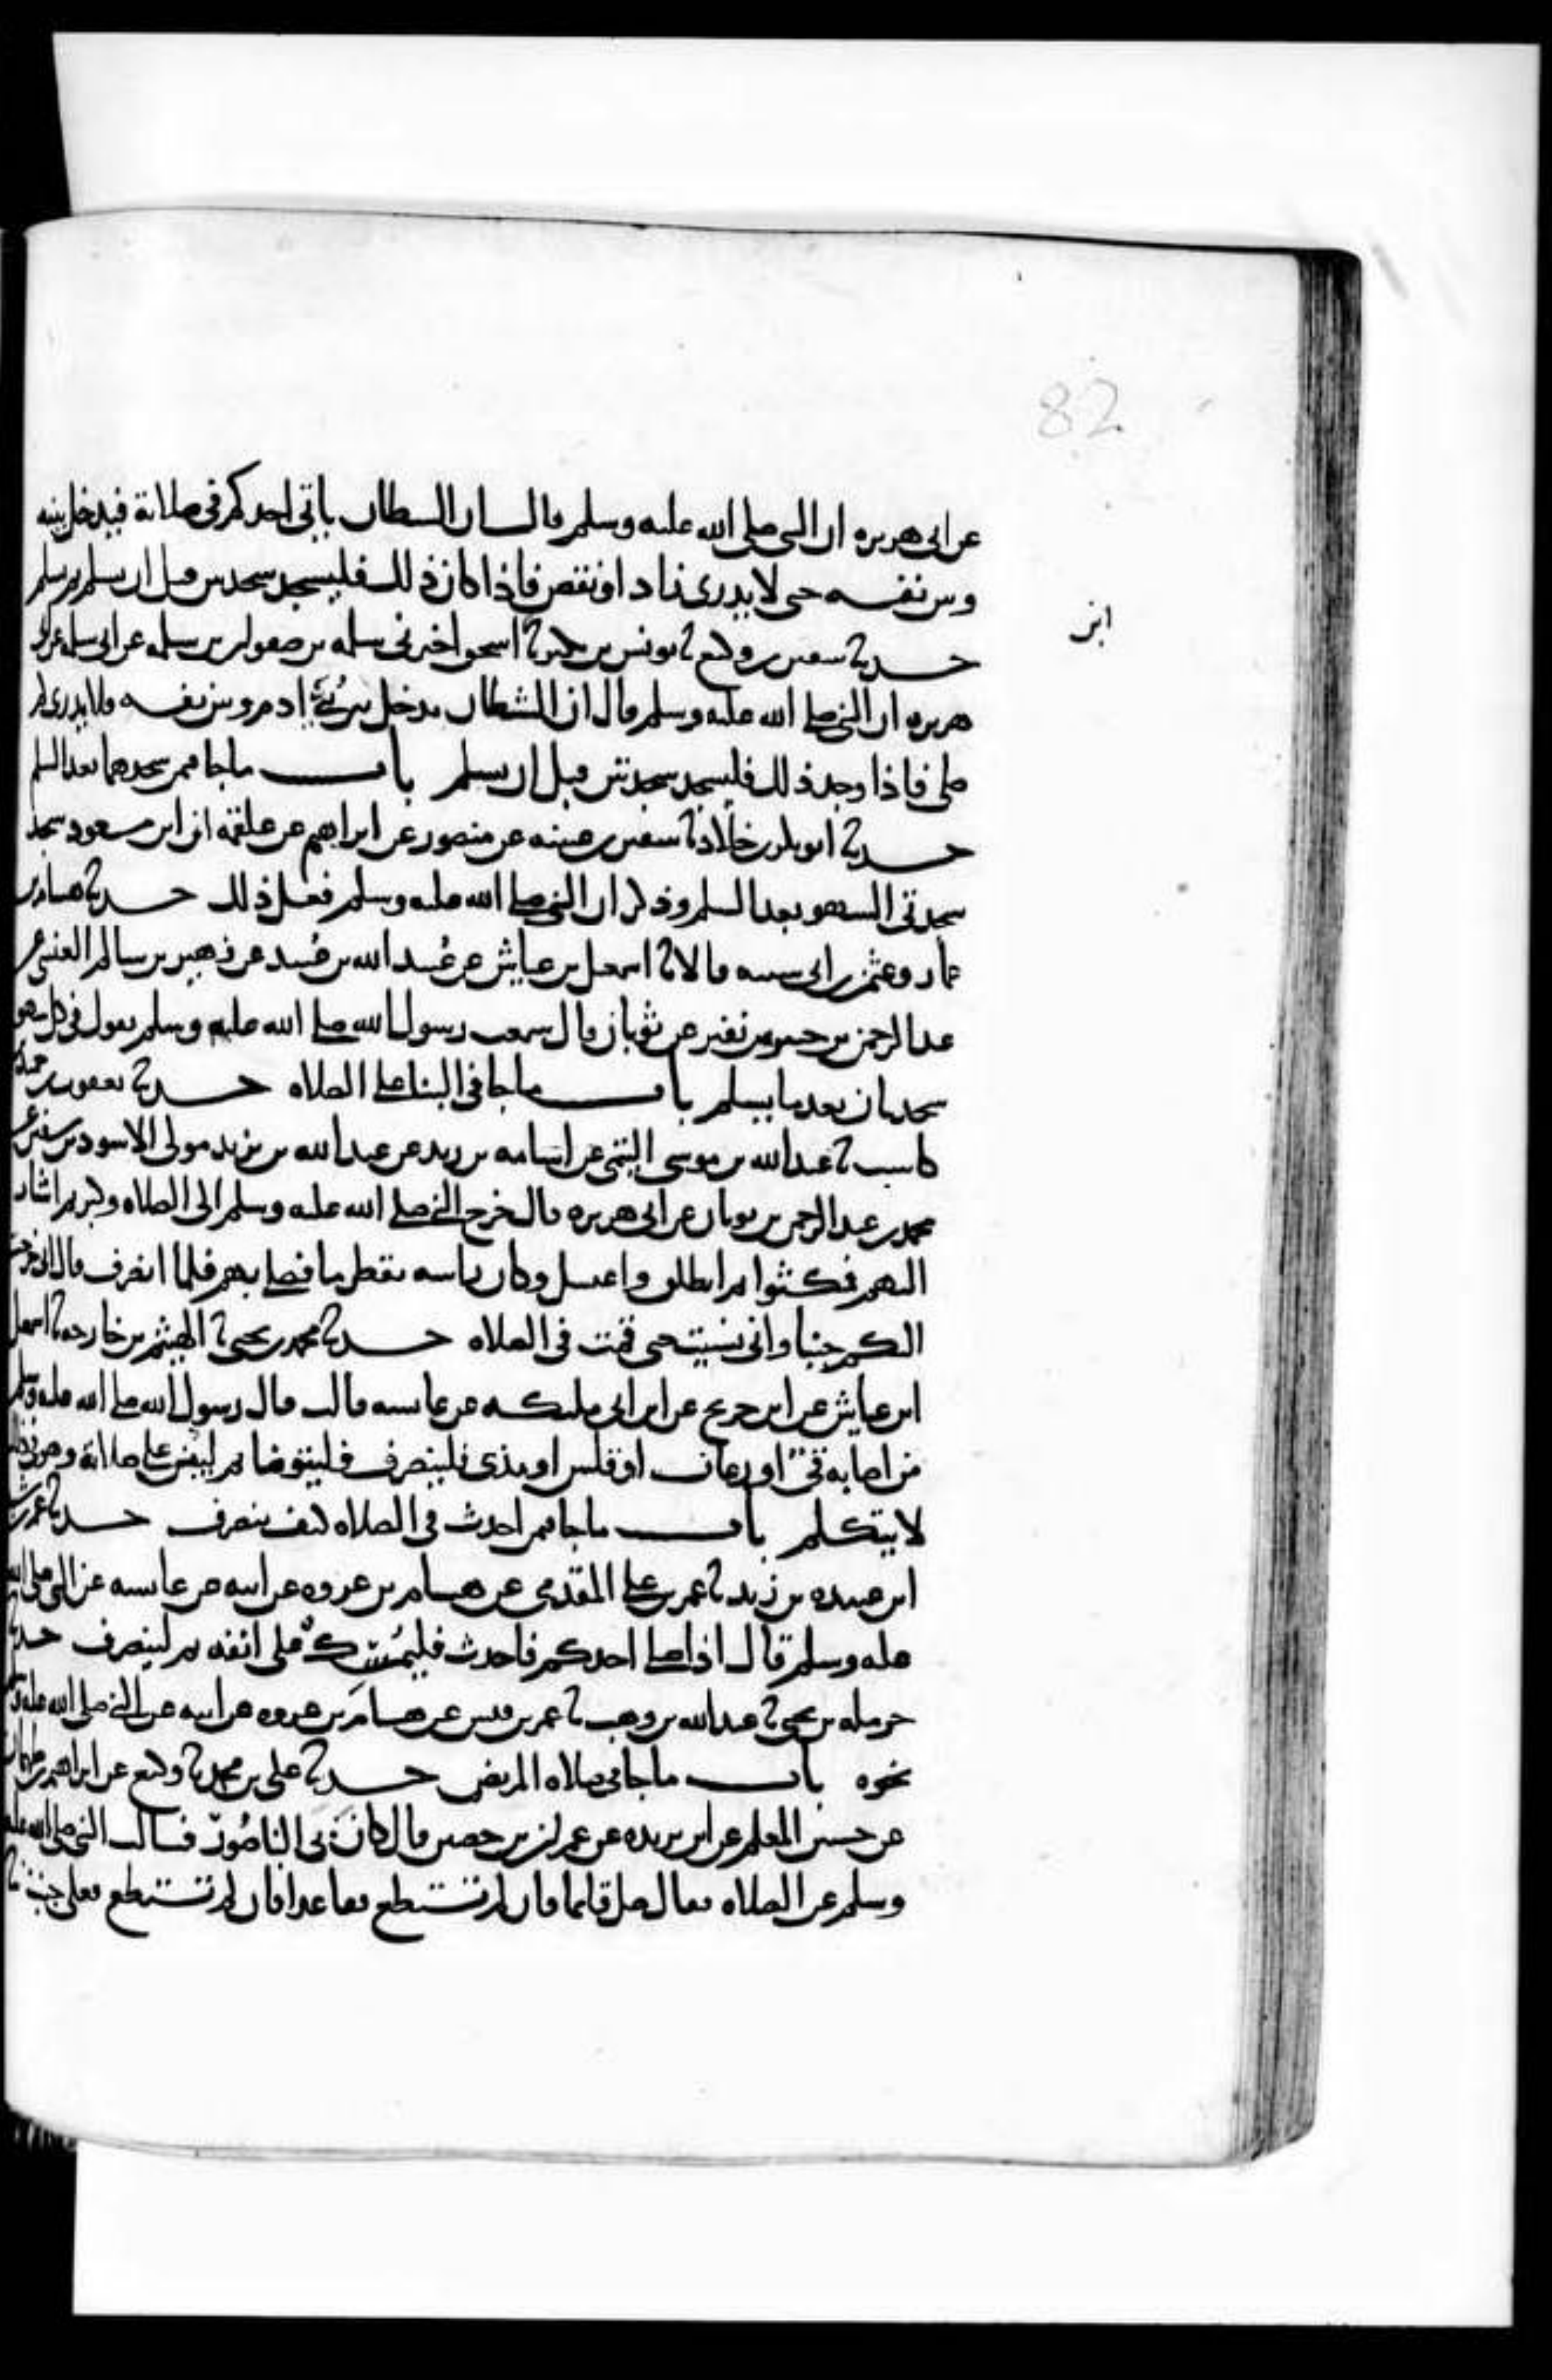 82
عن ابى هريره ان النبى صلى الله عليه وسلم قال ان الشيطان ياتى احدكم فى صلاته فيدخل بينه
وبين نفسه حتى لا يدرى زاد او نقص فاذا كان ذلك فليسجد سجدتين قبل ان يسلم ثم يسلم
ابن
حدثنا سفين بن وكيع ثنا يونس بن بكير ثنا اسحق اخبرنى سلمه بن صفوان بن سلمه عن ابى سلمه عن ابى
هريره ان النبى صلى الله عليه وسلم قال ان الشيطان يدخل بين ابن ادم وبين نفسه فلا يدرى كم
صلى فاذا وجد ذلك فليسجد سجدتين قبل ان يسلم باب ما جا فيمن سجدهما بعد السلم
حدثنا ابو بكر بن خلاد ثنا سفين بن عيينه عن منصور عن ابراهيم عن علقمه ان ابن مسعود سجد
سجدتى السهو بعد السلم وذكر ان النبى صلى الله عليه وسلم فعل ذلك حدثنا هشام بن
عمار وعثمن بن ابى شيبه قالا ثنا اسمعيل بن عياش عن عبيد الله بن عبيد عن زهير بن سالم العنسى عن
عبد الرحمن بن جبير بن نفير عن ثوبان قال سمعت رسول الله صلى الله عليه وسلم يقول فى كل سهو
سجدتان بعد ما يسلم باب ما جا فى البنا على الصلاه حدثنا يعقوب بن حميد بن
كاسب ثنا عبد الله بن موسى التيمى عن اسامه بن زيد عن عبد الله بن يزيد مولى الاسود بن سفين عن
محمد بن عبد الرحمن بن ثوبان عن ابى هريره قال خرج النبى صلى الله عليه وسلم الى الصلاه وكبر ثم اشار
اليهم فمكثوا ثم انطلق واغتسل وكان راسه يقطر ما فصلى بهم فلما انصرف قال انى خرجت
اليكم جنبا وانى نسيت حتى قمت فى الصلاه حدثنا محمد بن يحيى ثنا الهيثم بن خارجه ثنا اسمعيل
ابن عياش عن ابن جريج عن ابن ابى مليكه عن عايشه قالت قال رسول الله صلى الله عليه وسلم
من اصابه قئ او رعاف او قلس او مذى فلينصرف فليتوضا ثم ليبن على صلاته وهو فى ذلك
لا يتكلم باب ما جا فيمن احدث فى الصلاه كيف ينصرف حدثنا عمر بن شبه
ابن عبيده بن زيد ثنا عمر بن على المقدمى عن هشام بن عروه عن ابيه عن عايشه عن النبى صلى الله
عليه وسلم قال اذا صلى احدكم فاحدث فليمسك على انفه ثم لينصرف حدثنا
حرمله بن يحيى ثنا عبد الله بن وهب ثنا عمر بن قيس عن هشام بن عروه عن ابيه عن النبى صلى الله عليه وسلم
نحوه باب ما جا فى صلاه المريض حدثنا على بن محمد ثنا وكيع عن ابراهيم بن طهمان
عن حسين المعلم عن ابن بريده عن عمران بن حصين قال كان بى الناصور فسالت النبى صلى الله عليه
وسلم عن الصلاه فقال صل قائما فان لم تستطع فقاعدا فان لم تستطع فعلى جنب